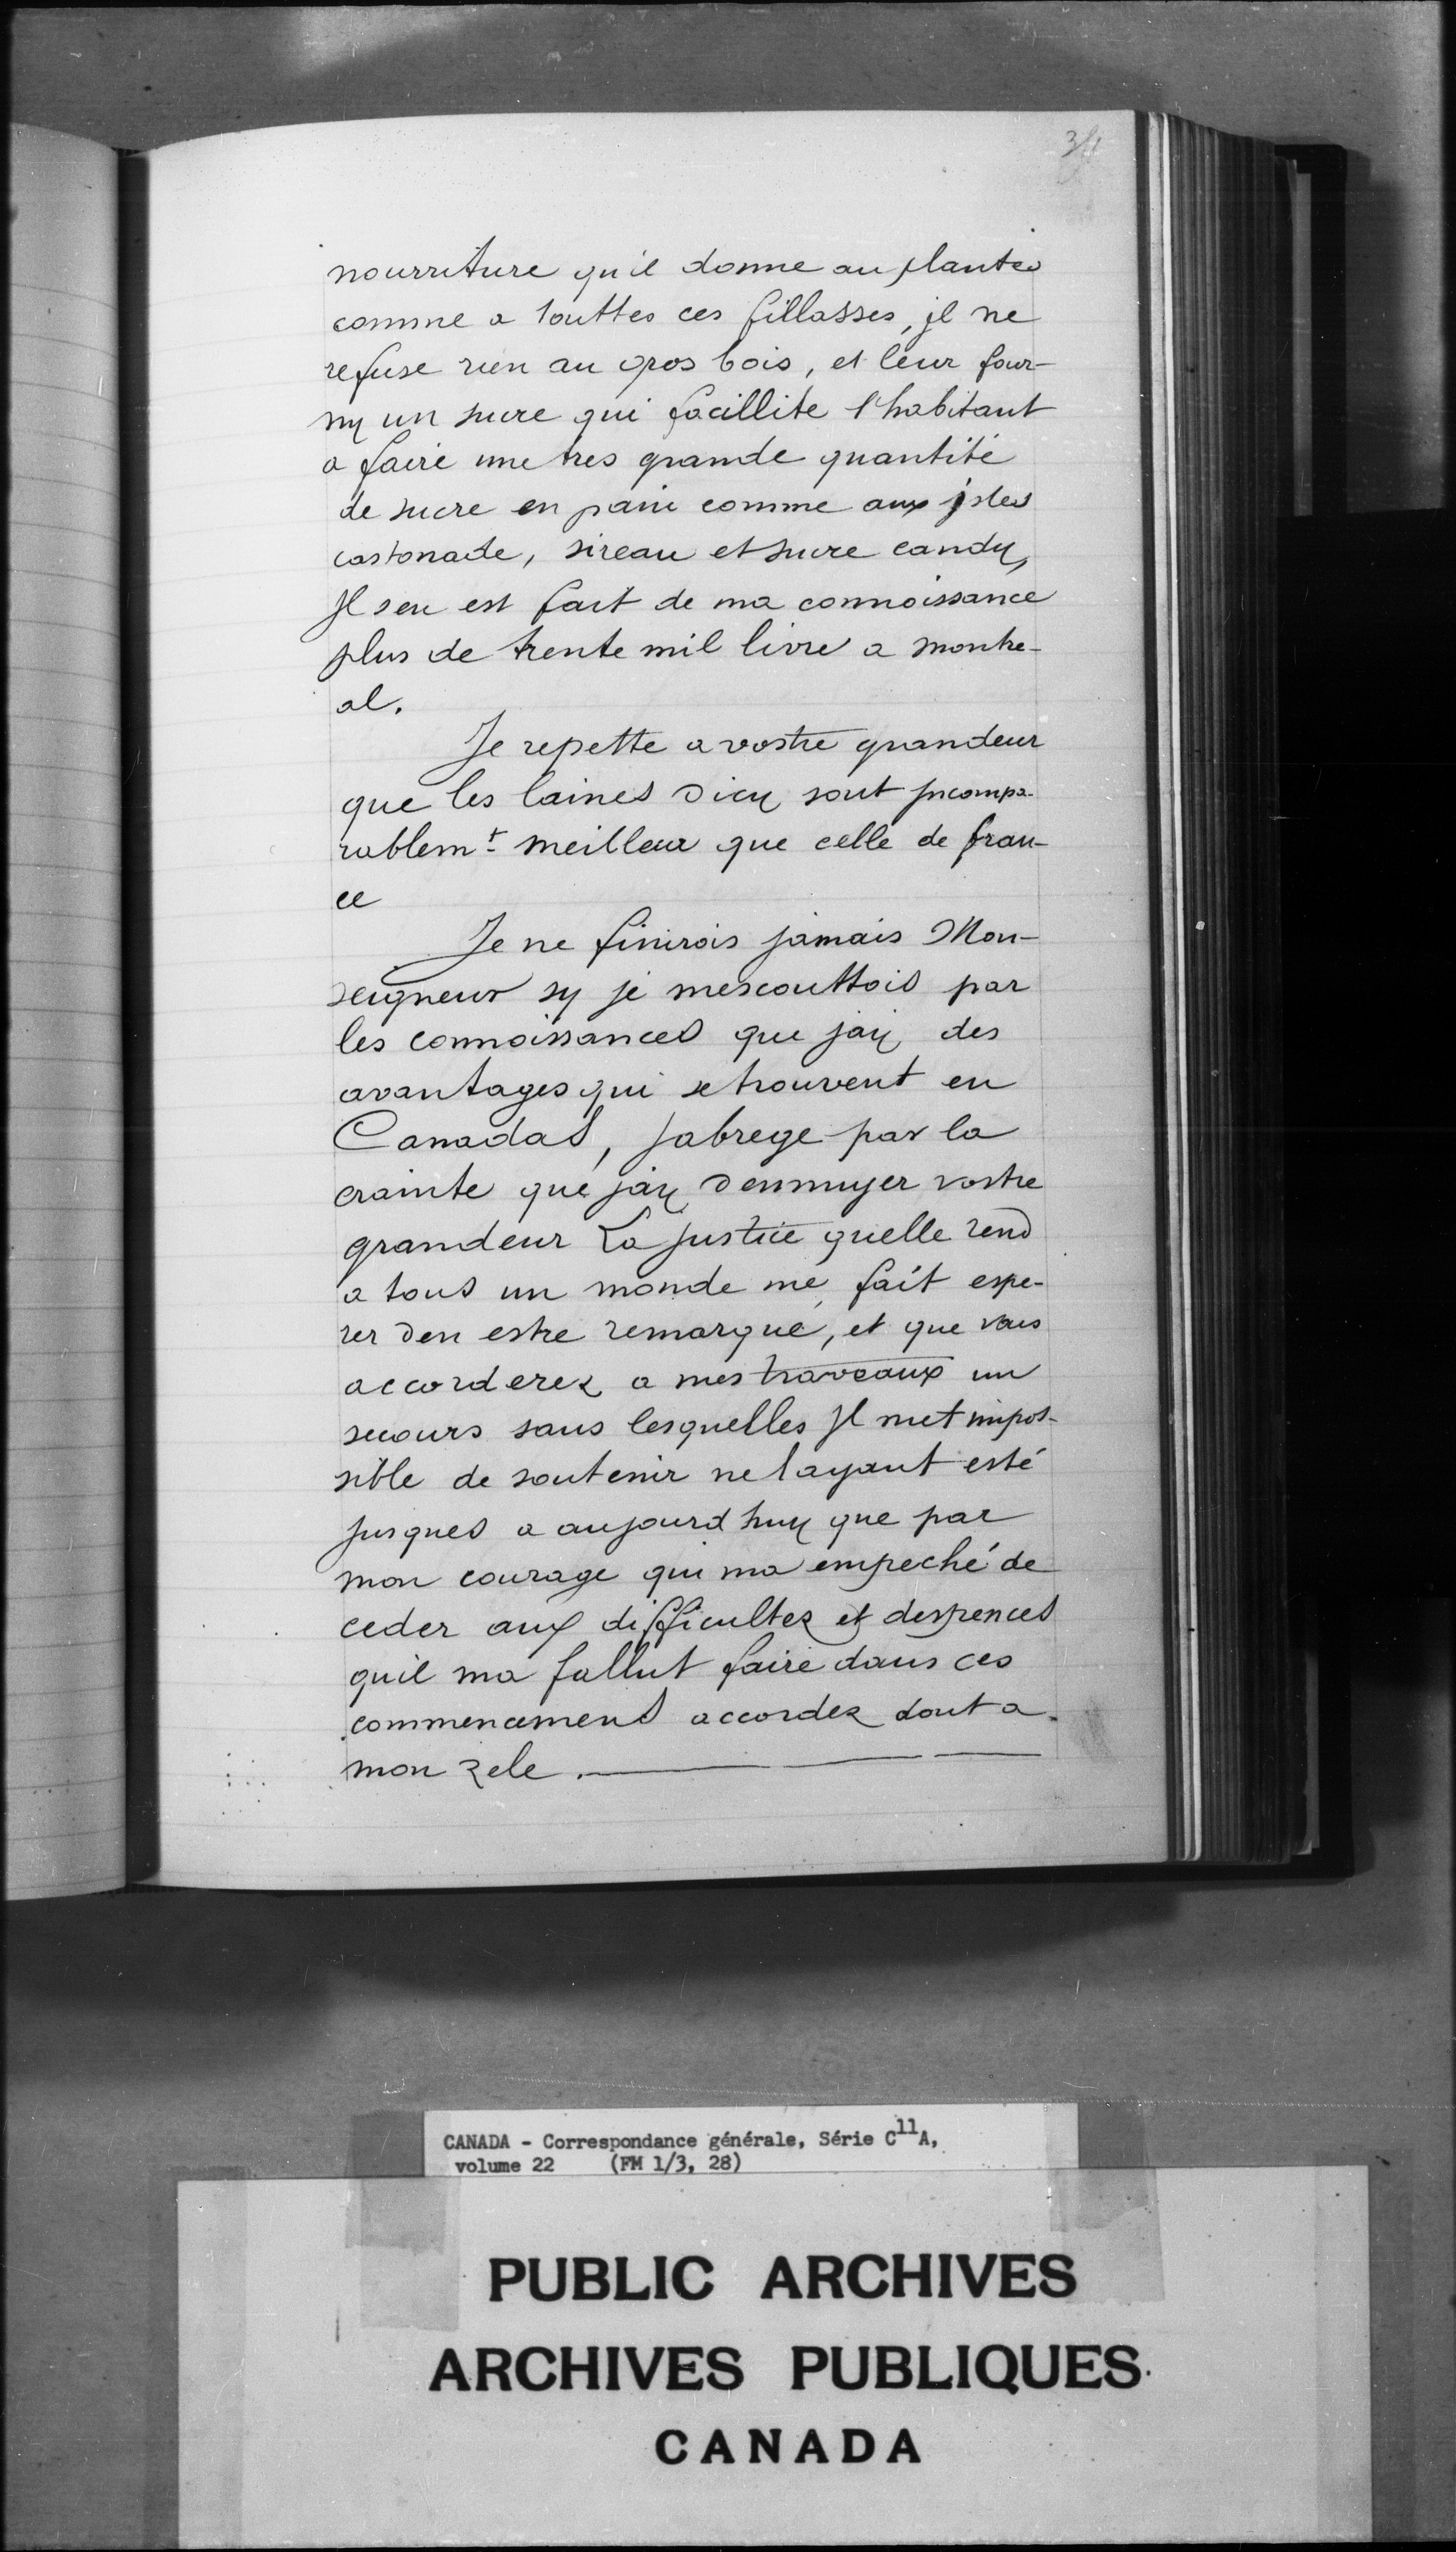 nourriture qu'il donne au plantes
comme a touttes ces fillasses, jl ne
refuse rien au gros bois, et leur four-
ny un sucre qui facillite l'habitant
a faire une tres grande quantité
de sucre en pain comme aux jsles
castonade, sireau et sucre candy,
Jl sen est fait de ma connoissance
plus de trente mil livre a montre-
al.
Je repette a vostre grandeur
que les laines dicy sont jncompa-
rablemt meilleur que celle de fran-
ce
Je ne finirois jamais Mon-
seigneur sy je mescouttois par
les connoissances que jay des
avantages qui se trouvent en
Canadas, jabrege par la
crainte que jay dennuyer vostre
grandeur La justice quelle rend
a tous un monde me fait espe-
rer den estre remarqué, et que vous
accorderez a mes traveaux un
secours sans lesquelles Jl met impos-
sible de soutenir ne layant esté
jusques a aujourd huy que par
mon courage qui ma empeché de
ceder aux difficultez et despences
quil ma fallut faire dans ces
commencemens accordez dont a
mon zele.
CANADA - Correspondance générale, Série C11A,
volume 22 (FM 1/3, 28)
PUBLIC ARCHIVES
ARCHIVES PUBLIQUES
CANADA